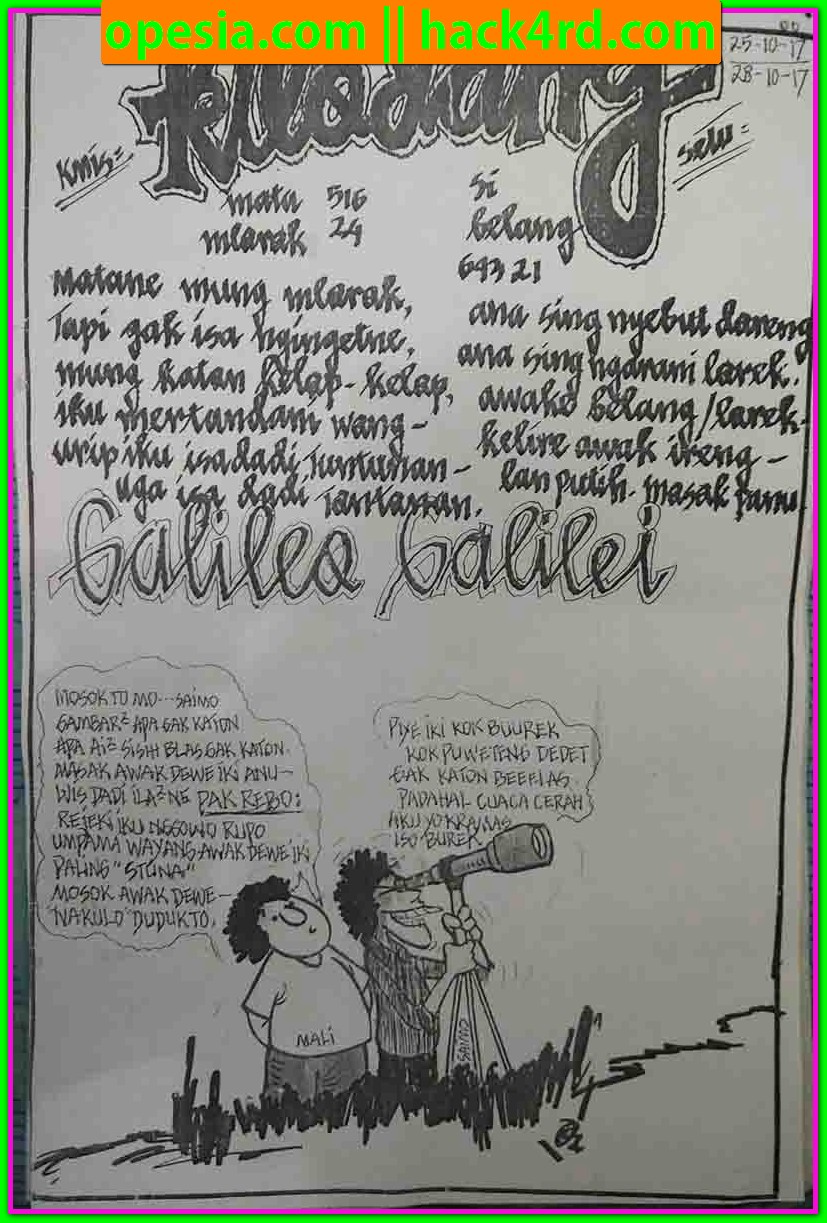 opesia.com || hack4rd.com
25-10-17
28-10-17
Kmis=
selu=
mata 516
mlarak 24
Matane mung mlarak,
Tapi gak isa ngingetne,
mung katan kelap-kelap,
iku mertandani wang-
urip iku isa dadi Tuntunan-
uga isa dadi Tantanan.
si
belang
643 21
ana sing nyebut dareng
ana sing ngarani larek.
awake belang/larek-
kelire awak ireng-
lan putih. masak
Galileo Galilei
MOSOK TO MO...SAIMO
GAMBAR² APA GAK KATON
APA AI² SISIH BLAS GAK KATON.
MASAK AWAK DEWE IKI ANU-
WIS DADI ILA² NE PAK REBO:
REJEKI IKU NGGOWO RUPO
UMPAMA WAYANG AWAK DEWE IKI
PALING "STUNA"
MOSOK AWAK DEWE-
"NAKULO" DUDUK TO.
PIYE IKI KOK BUUREK
KOK PUWETENG DEDET
GAK KATON BEEBLAS
PADAHAL CUACA CERAH
AKU YO KRAMAS
ISO BUREK
MALI
SAIMO